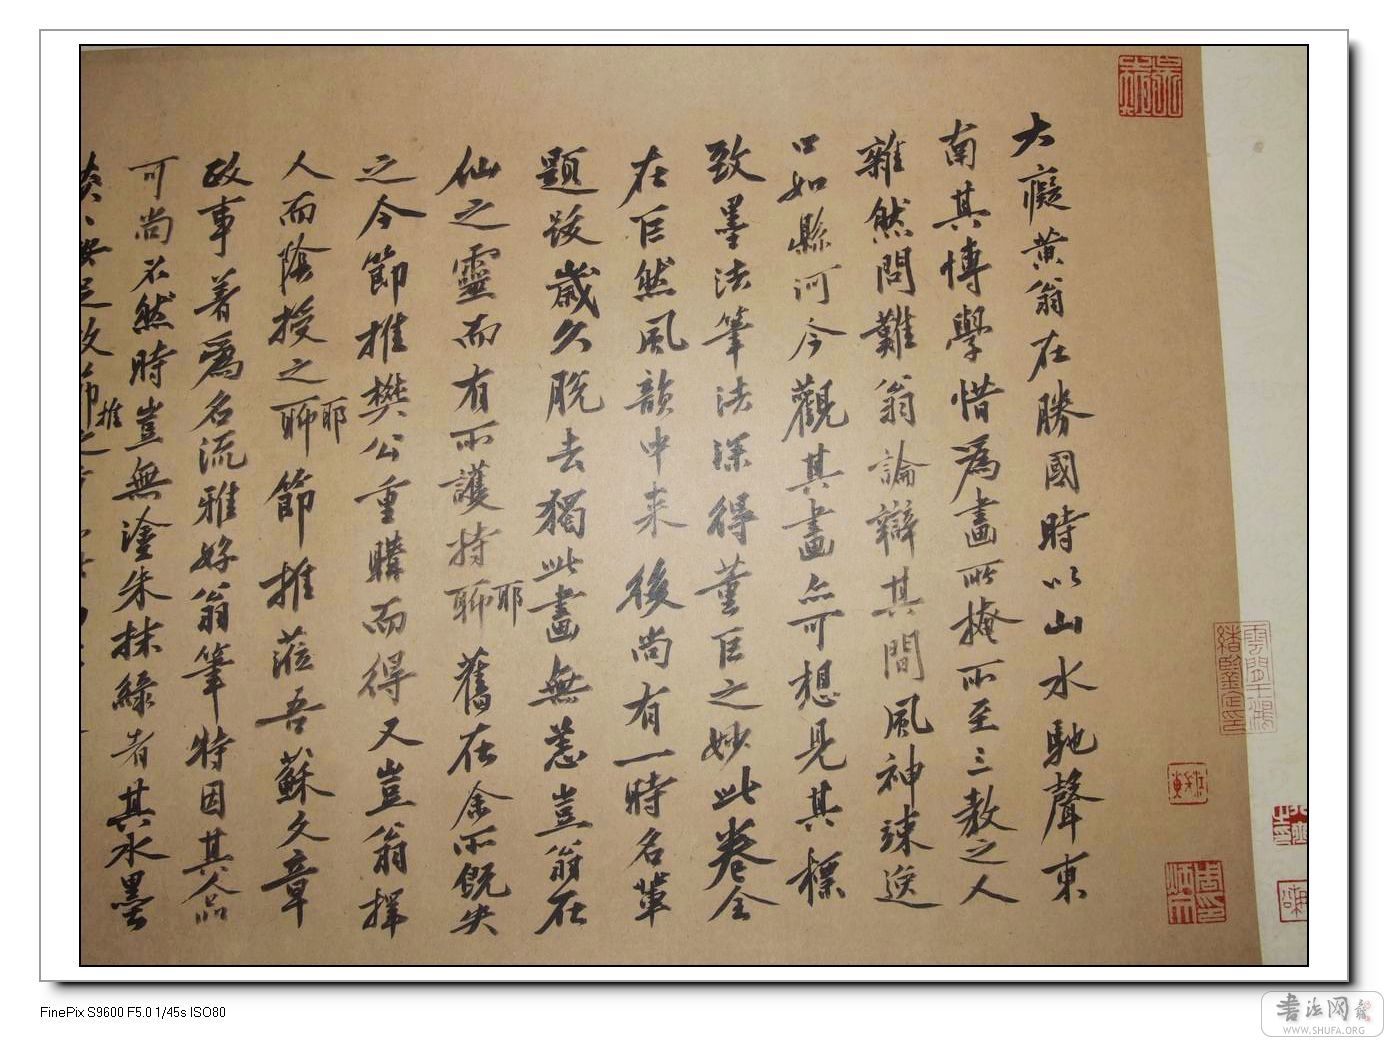 大癡黃翁在勝國時以山水馳聲東
南其博學惜為畫所掩所至三教之人
雜然問難翁論辯其間風神竦逸
口如縣河今觀其畫亦可想見其標
致墨法筆法深得董巨之妙此卷全
在巨然風韻中来後尚有一時名輩
題跋歲久脫去獨此畫無恙豈翁在
仙之靈而有所護持耶舊在余所既失
之今節推樊公重購而得又豈翁揮
人而陰授之耶節推蒞吾蘇文章
政事著為名流雅好翁筆特因其人品
可尚不然時豈無塗朱抹綠者其水墨
淡淡安足致節推之
FinePix S9600 F5.0 1/45s ISO80
書法网
WWW.SHUFA.ORG